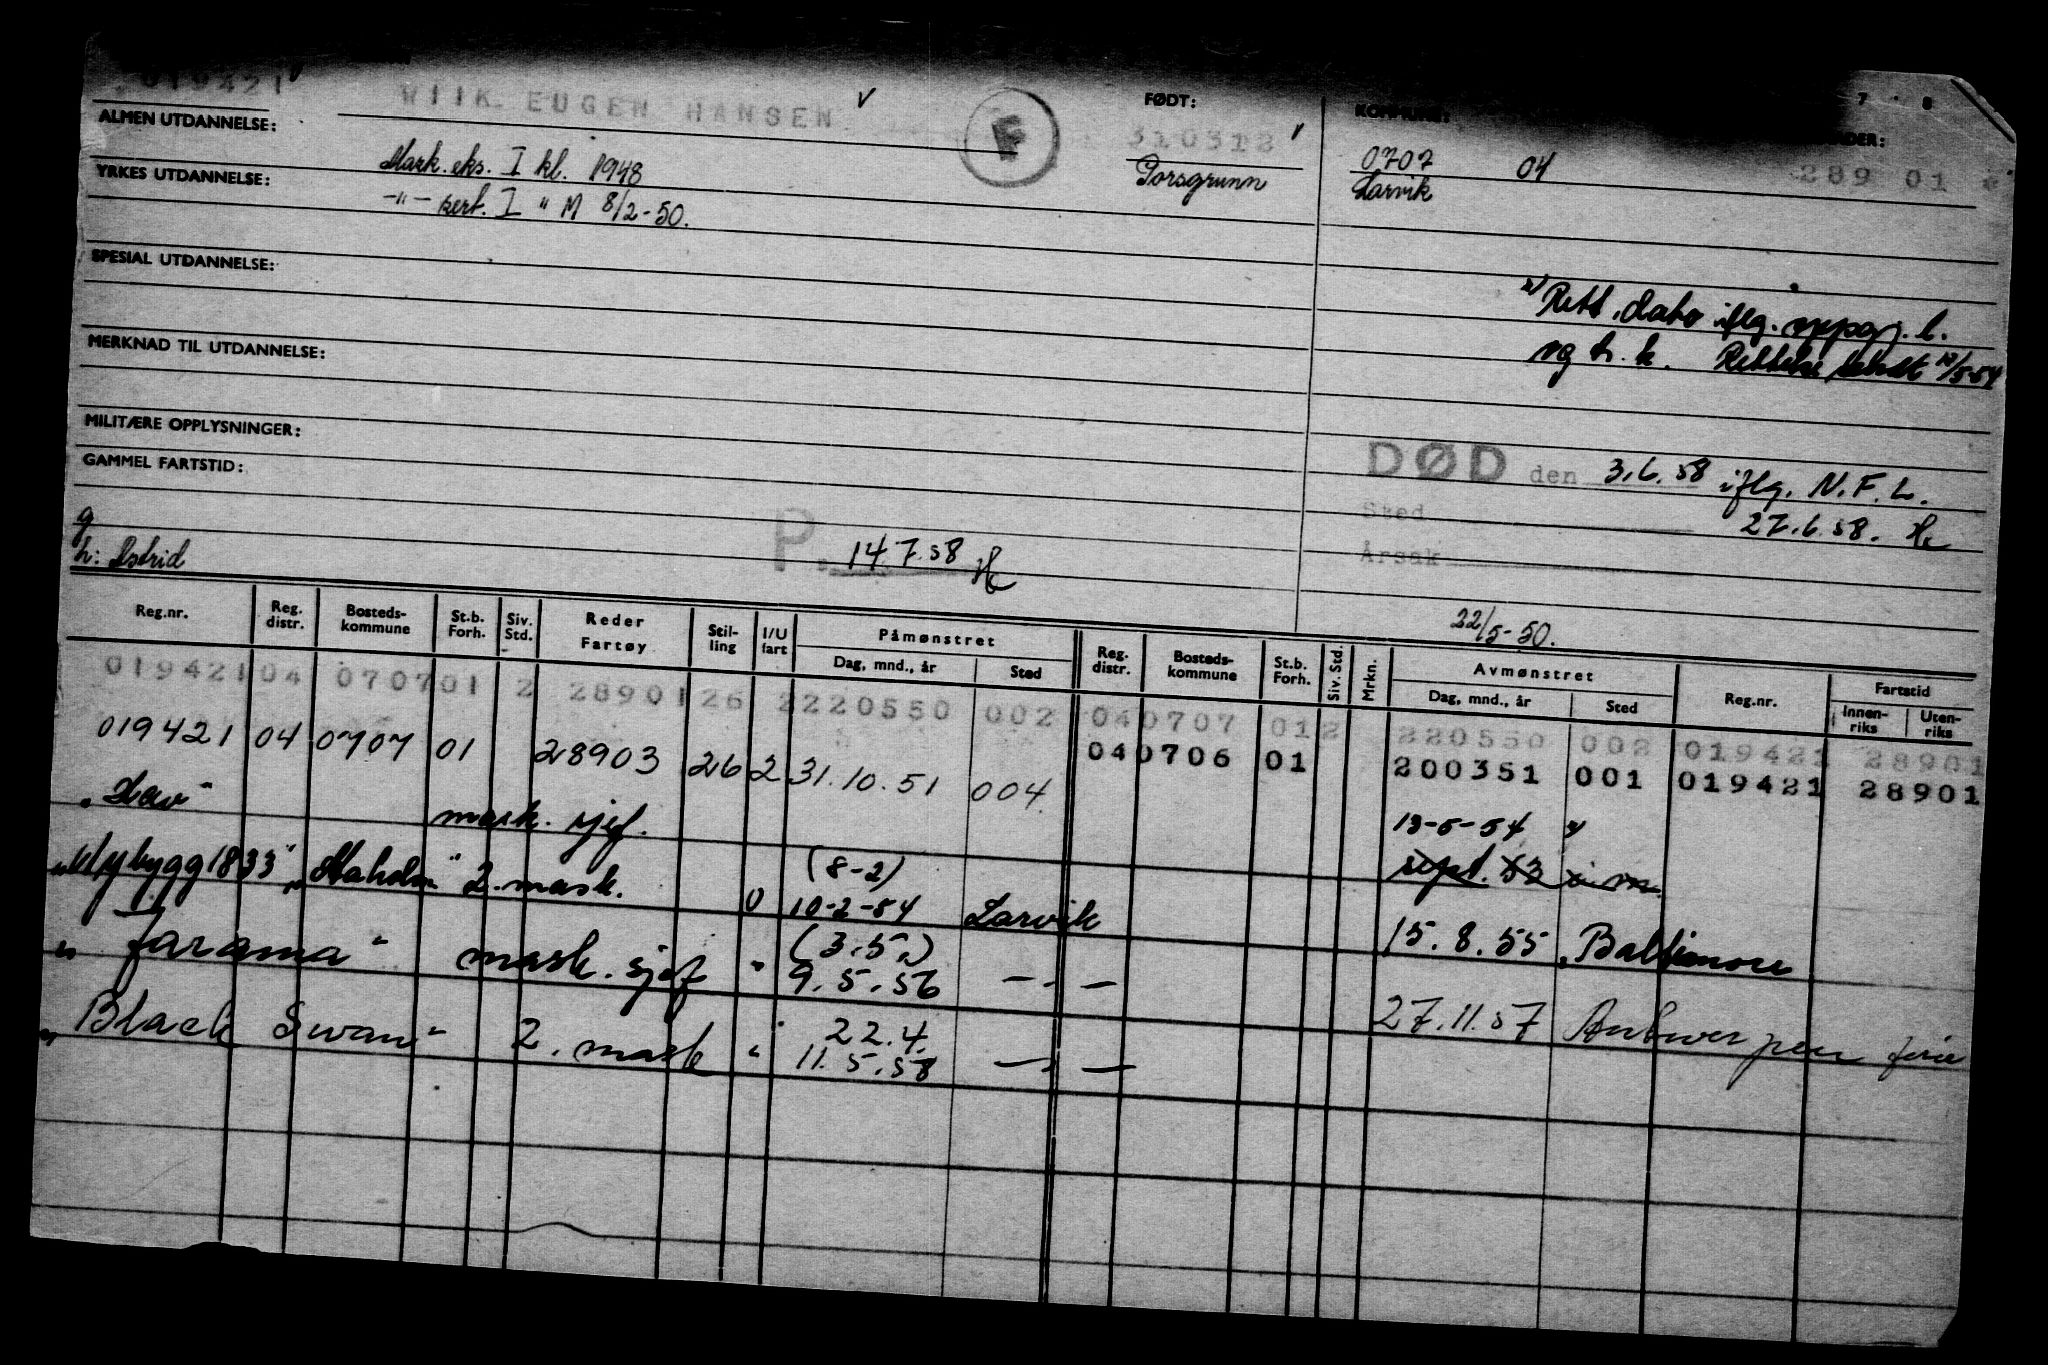 019421
WIIK EUGEN HANSEN
F
FØDT:
310312
Porsgrunn
KOMMUNE:
0707 04
Larvik
7 8
289 01
ALMEN UTDANNELSE:
YRKES UTDANNELSE:
Mask. eks. I kl. 1948
-"- sert. I " M 8/2-50.
SPESIAL UTDANNELSE:
MERKNAD TIL UTDANNELSE:
MILITÆRE OPPLYSNINGER:
GAMMEL FARTSTID:
x) Rett. dato iflg. oppg. l.
og h. k. 12/5-54
DØD den 3.6.58 iflg. N.F.L.
Sted 27.6.58. He
Årsak
g
h: Astrid
P. 14.7.58 He
22/5-50.
Reg.nr. Reg. distr. Bosteds-kommune St.b. Forh. Siv. Std. Reder Fartøy Stil-ling I/U fart Påmønstret Dag, mnd., år Sted Reg. distr. Bosteds-kommune St.b. Forh. Siv. Std. Mrkn. Avmønstret Dag, mnd., år Sted Reg.nr. Fartstid Innen-riks Uten-riks
019421 04 0707 01 2 28901 26 2 220550 002 04 0707 01 2 220550 002 019421 28901
019421 04 0707 01 28903 26 2 31.10.51 004 04 0706 01 200351 001 019421 28901
mask. sjef. 13-5-54 x)
sept. 53 i m.
"Nybygg 1833" 2. mask. (8-2)
U 10-2-54 Larvik 15.8.55 Baltimore
"Jarama" mask. sjef " (3.5.)
9.5.56 — " — 27.11.57 Antwerpen ferie
"Black Swan" 2. mask " 22.4.
11.5.58 — " —